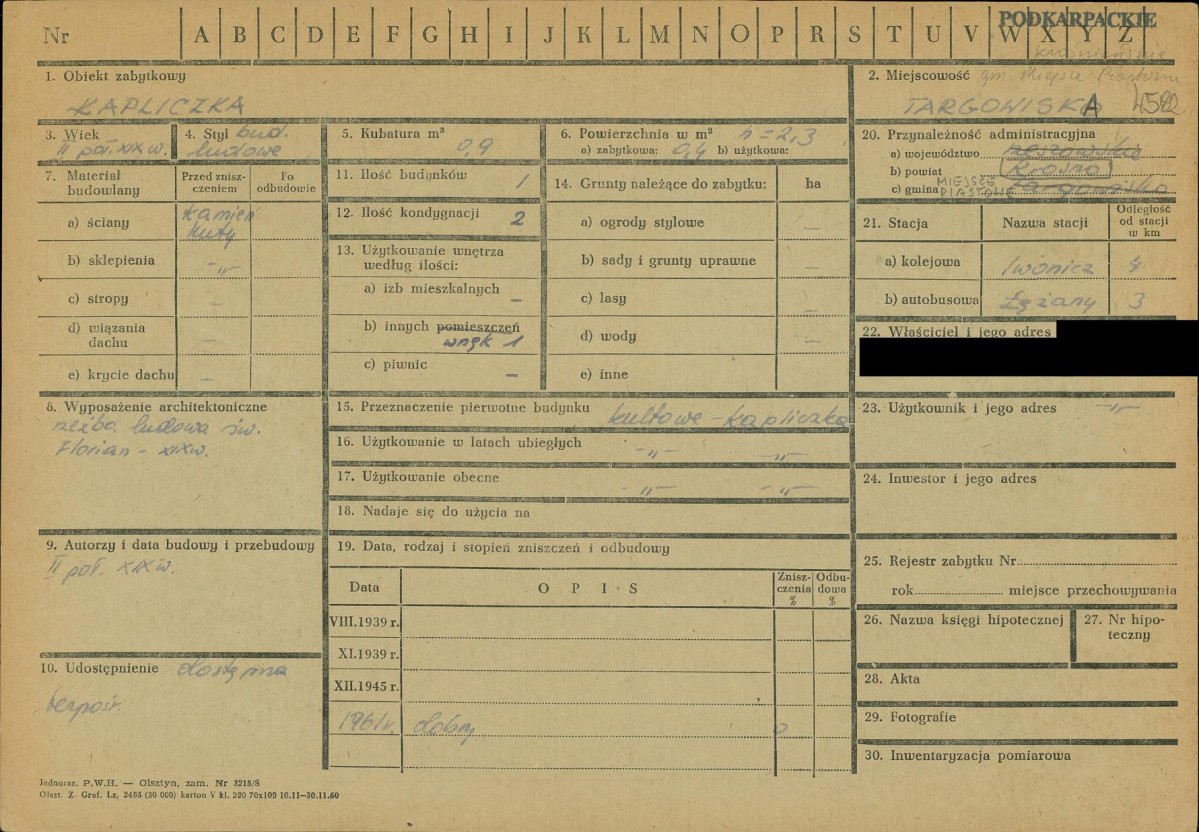 PODKARPACKIE
Nr A B C D E F G H I J K L M N O P R S T U V W X Y Z
krośnieńskie
1. Obiekt zabytkowy
KAPLICZKA
2. Miejscowość gm. Miejsce Piastowe
TARGOWISKA 4582
3. Wiek
II poł. XIX w.
4. Styl bud.
ludowe
5. Kubatura m³
0,9
6. Powierzchnia w m² h = 2,3
a) zabytkowa: 0,4 b) użytkowa:
7. Materiał budowlany
Przed zniszczeniem
Po odbudowie
a) ściany kamień
kuty
b) sklepienia -„-
c) stropy –
d) wiązania dachu –
e) krycie dachu –
8. Wyposażenie architektoniczne
rzeźba ludowa św.
Florian - XIX w.
9. Autorzy i data budowy i przebudowy
II poł. XIX w.
10. Udostępnienie dostępna
bezpośr.
11. Ilość budynków 1
12. Ilość kondygnacji 2
13. Użytkowanie wnętrza
według ilości:
a) izb mieszkalnych –
b) innych pomieszczeń
wnęk 1
c) piwnic –
14. Grunty należące do zabytku: ha
a) ogrody stylowe –
b) sady i grunty uprawne –
c) lasy
d) wody –
e) inne
15. Przeznaczenie pierwotne budynku kultowe - kapliczka
16. Użytkowanie w latach ubiegłych -„- -„-
17. Użytkowanie obecne -„- -„-
18. Nadaje się do użycia na
19. Data, rodzaj i stopień zniszczeń i odbudowy
Data O P I S Zniszczenia % Odbudowa %
VIII.1939 r.
XI.1939 r.
XII.1945 r.
1961 r. dobry 0
20. Przynależność administracyjna
a) województwo rzeszowskie
b) powiat Krosno
c) gmina MIEJSCE PIASTOWE Targowiska
21. Stacja Nazwa stacji Odległość od stacji w km
a) kolejowa Iwonicz 4
b) autobusowa Łężany 3
22. Właściciel i jego adres
23. Użytkownik i jego adres -„-
24. Inwestor i jego adres
25. Rejestr zabytku Nr
rok miejsce przechowywania
26. Nazwa księgi hipotecznej
27. Nr hipoteczny
28. Akta
29. Fotografie
30. Inwentaryzacja pomiarowa
Jednoraz. P.W.H. — Olsztyn, zam. Nr 3215/S
Olszt. Z. Graf. Lz, 2485 (30 000) karton V kl. 220 70x100 10.11—30.11.60